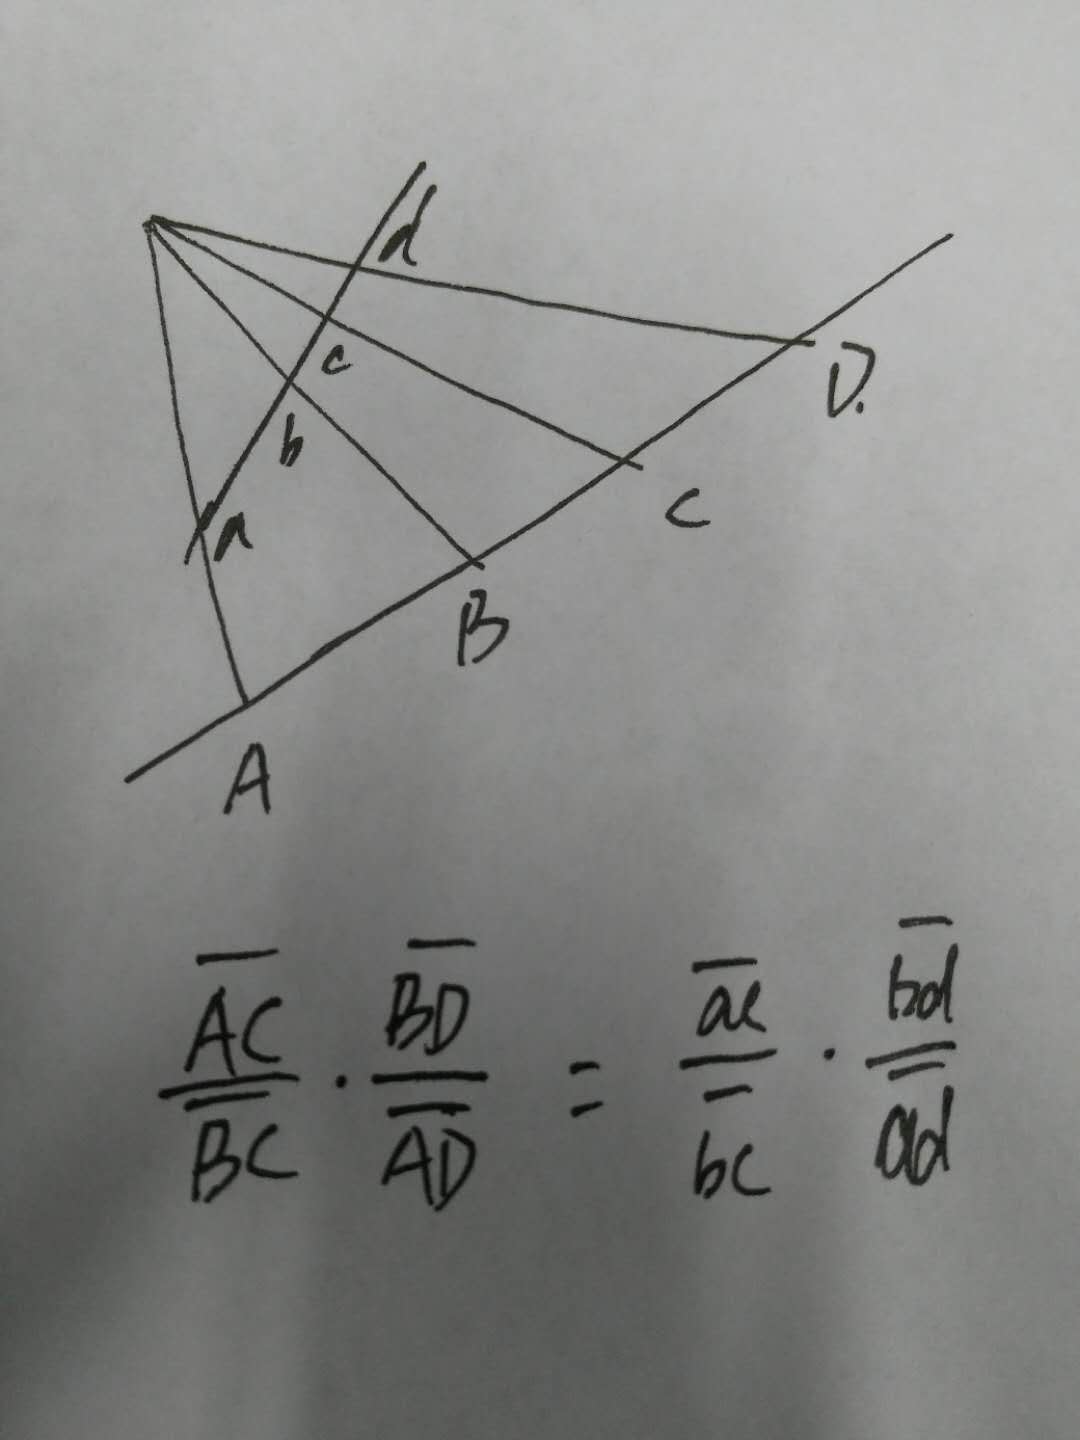 d
c
b
a
D.
C
B
A
\frac{\overline{AC}}{\overline{BC}} \cdot \frac{\overline{BD}}{\overline{AD}} = \frac{\overline{ac}}{\overline{bc}} \cdot \frac{\overline{bd}}{\overline{ad}}